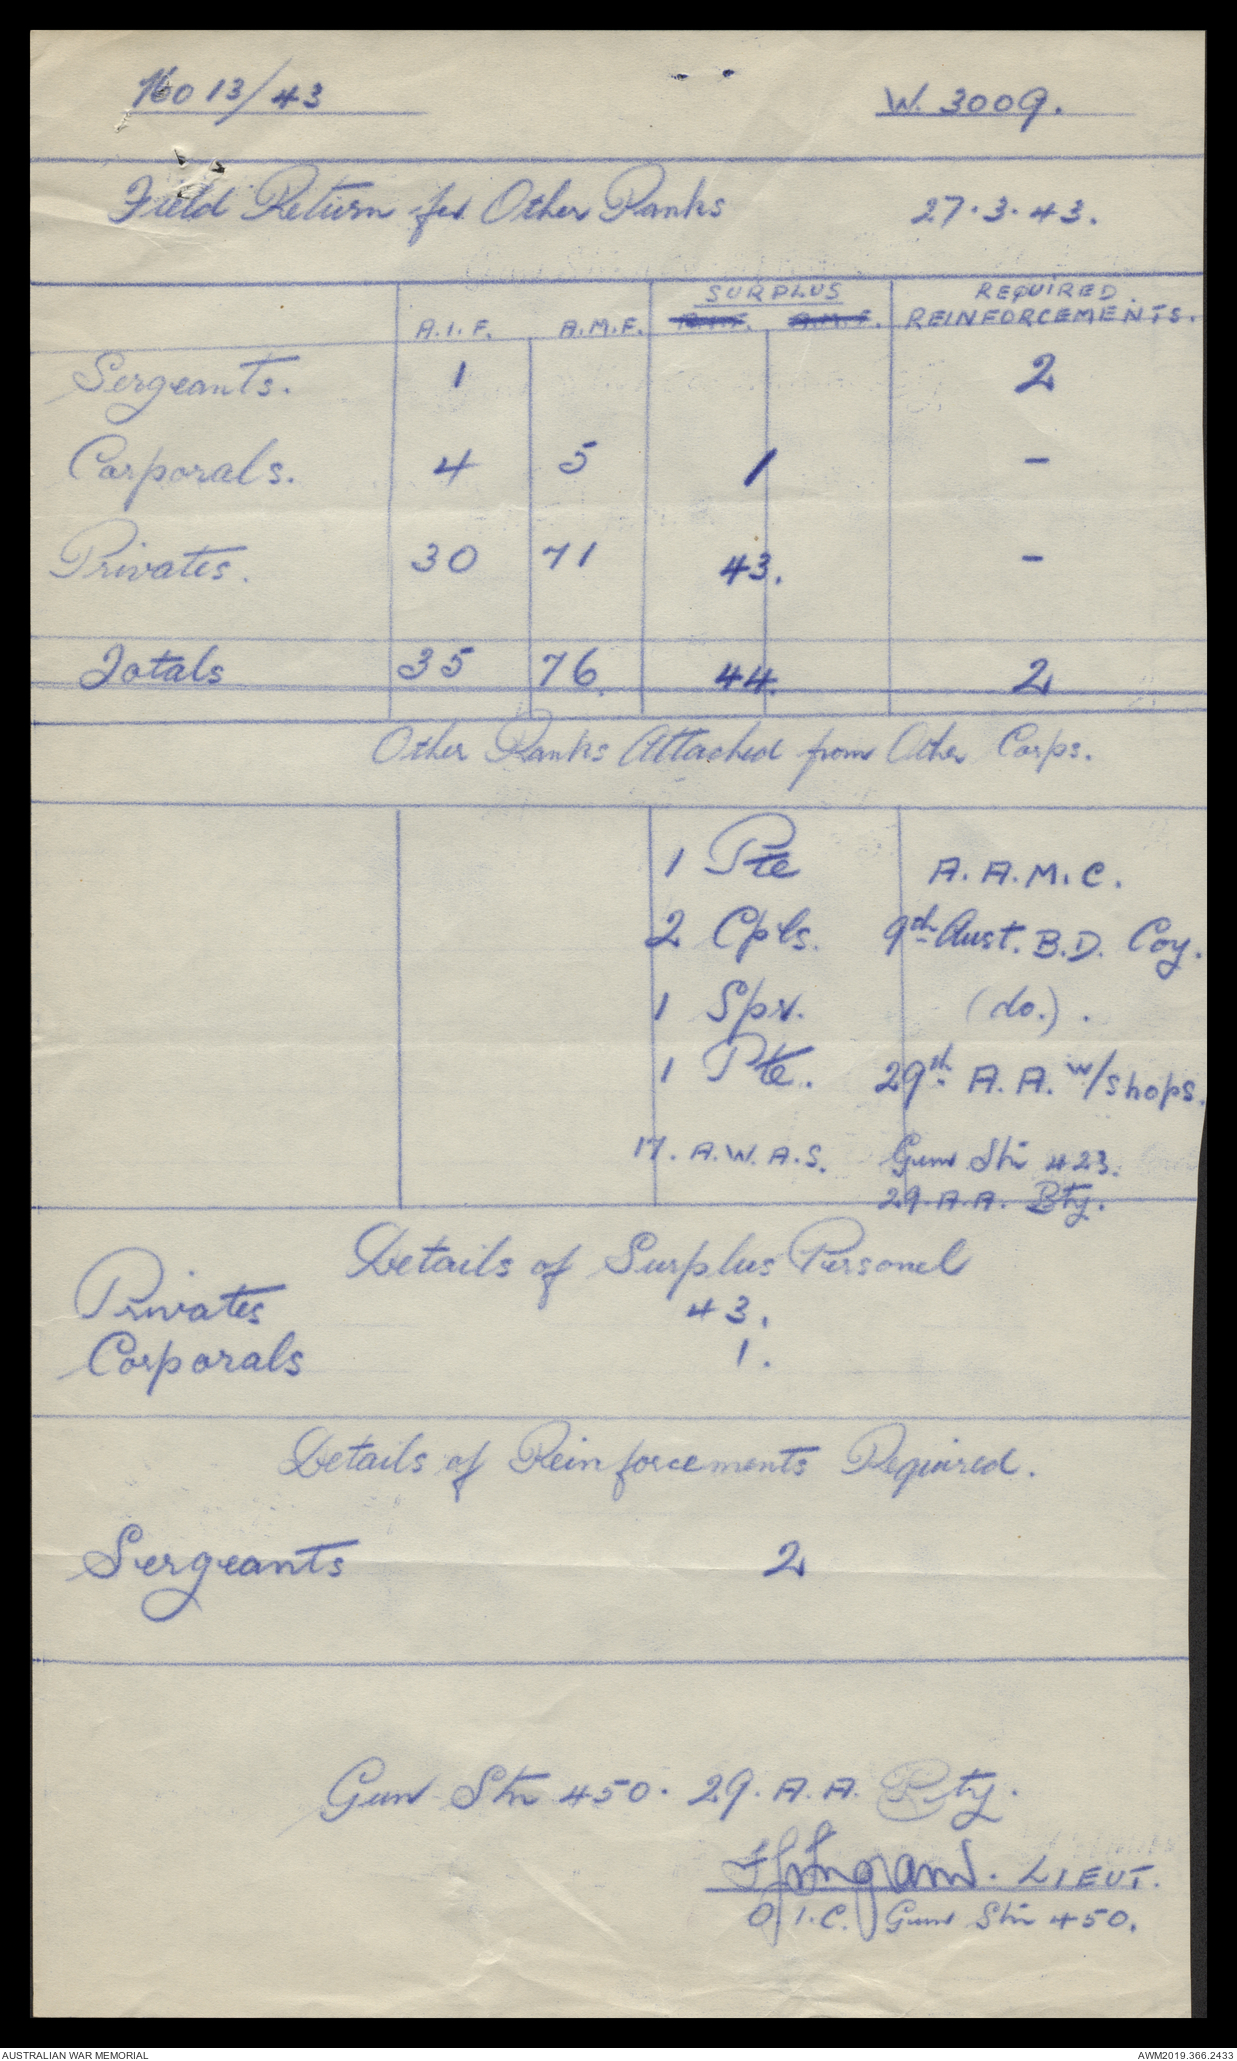 13/43
W. 3009.
Field Return for Other Ranks 27.3.43.
SURPLUS REQUIRED
A.I.F. A.M.F. A.I.F. A.M.F. REINFORCEMENTS.
Sergeants. 1 2
Corporals. 4 5 1 -
Privates. 30 71 43. -
Totals 35 76. 44. 2
Other Ranks Attached from Other Corps.
1 Pte A.A.M.C.
2 Cpls. 9th Aust. B.D. Coy.
1 Spr. (do.).
1 Pte. 29th A.A. w/shops.
17. A.W.A.S. Gun Stn 423.
29. A.A. Bty.
Details of Surplus Personel
Privates 43.
Corporals 1.
Details of Reinforcements Required.
Sergeants 2
Gun Stn 450. 29. A.A. Bty.
Ingram. LIEUT.
O.I.C. Gun Stn 450.
AUSTRALIAN WAR MEMORIAL
AWM2019.366.2433